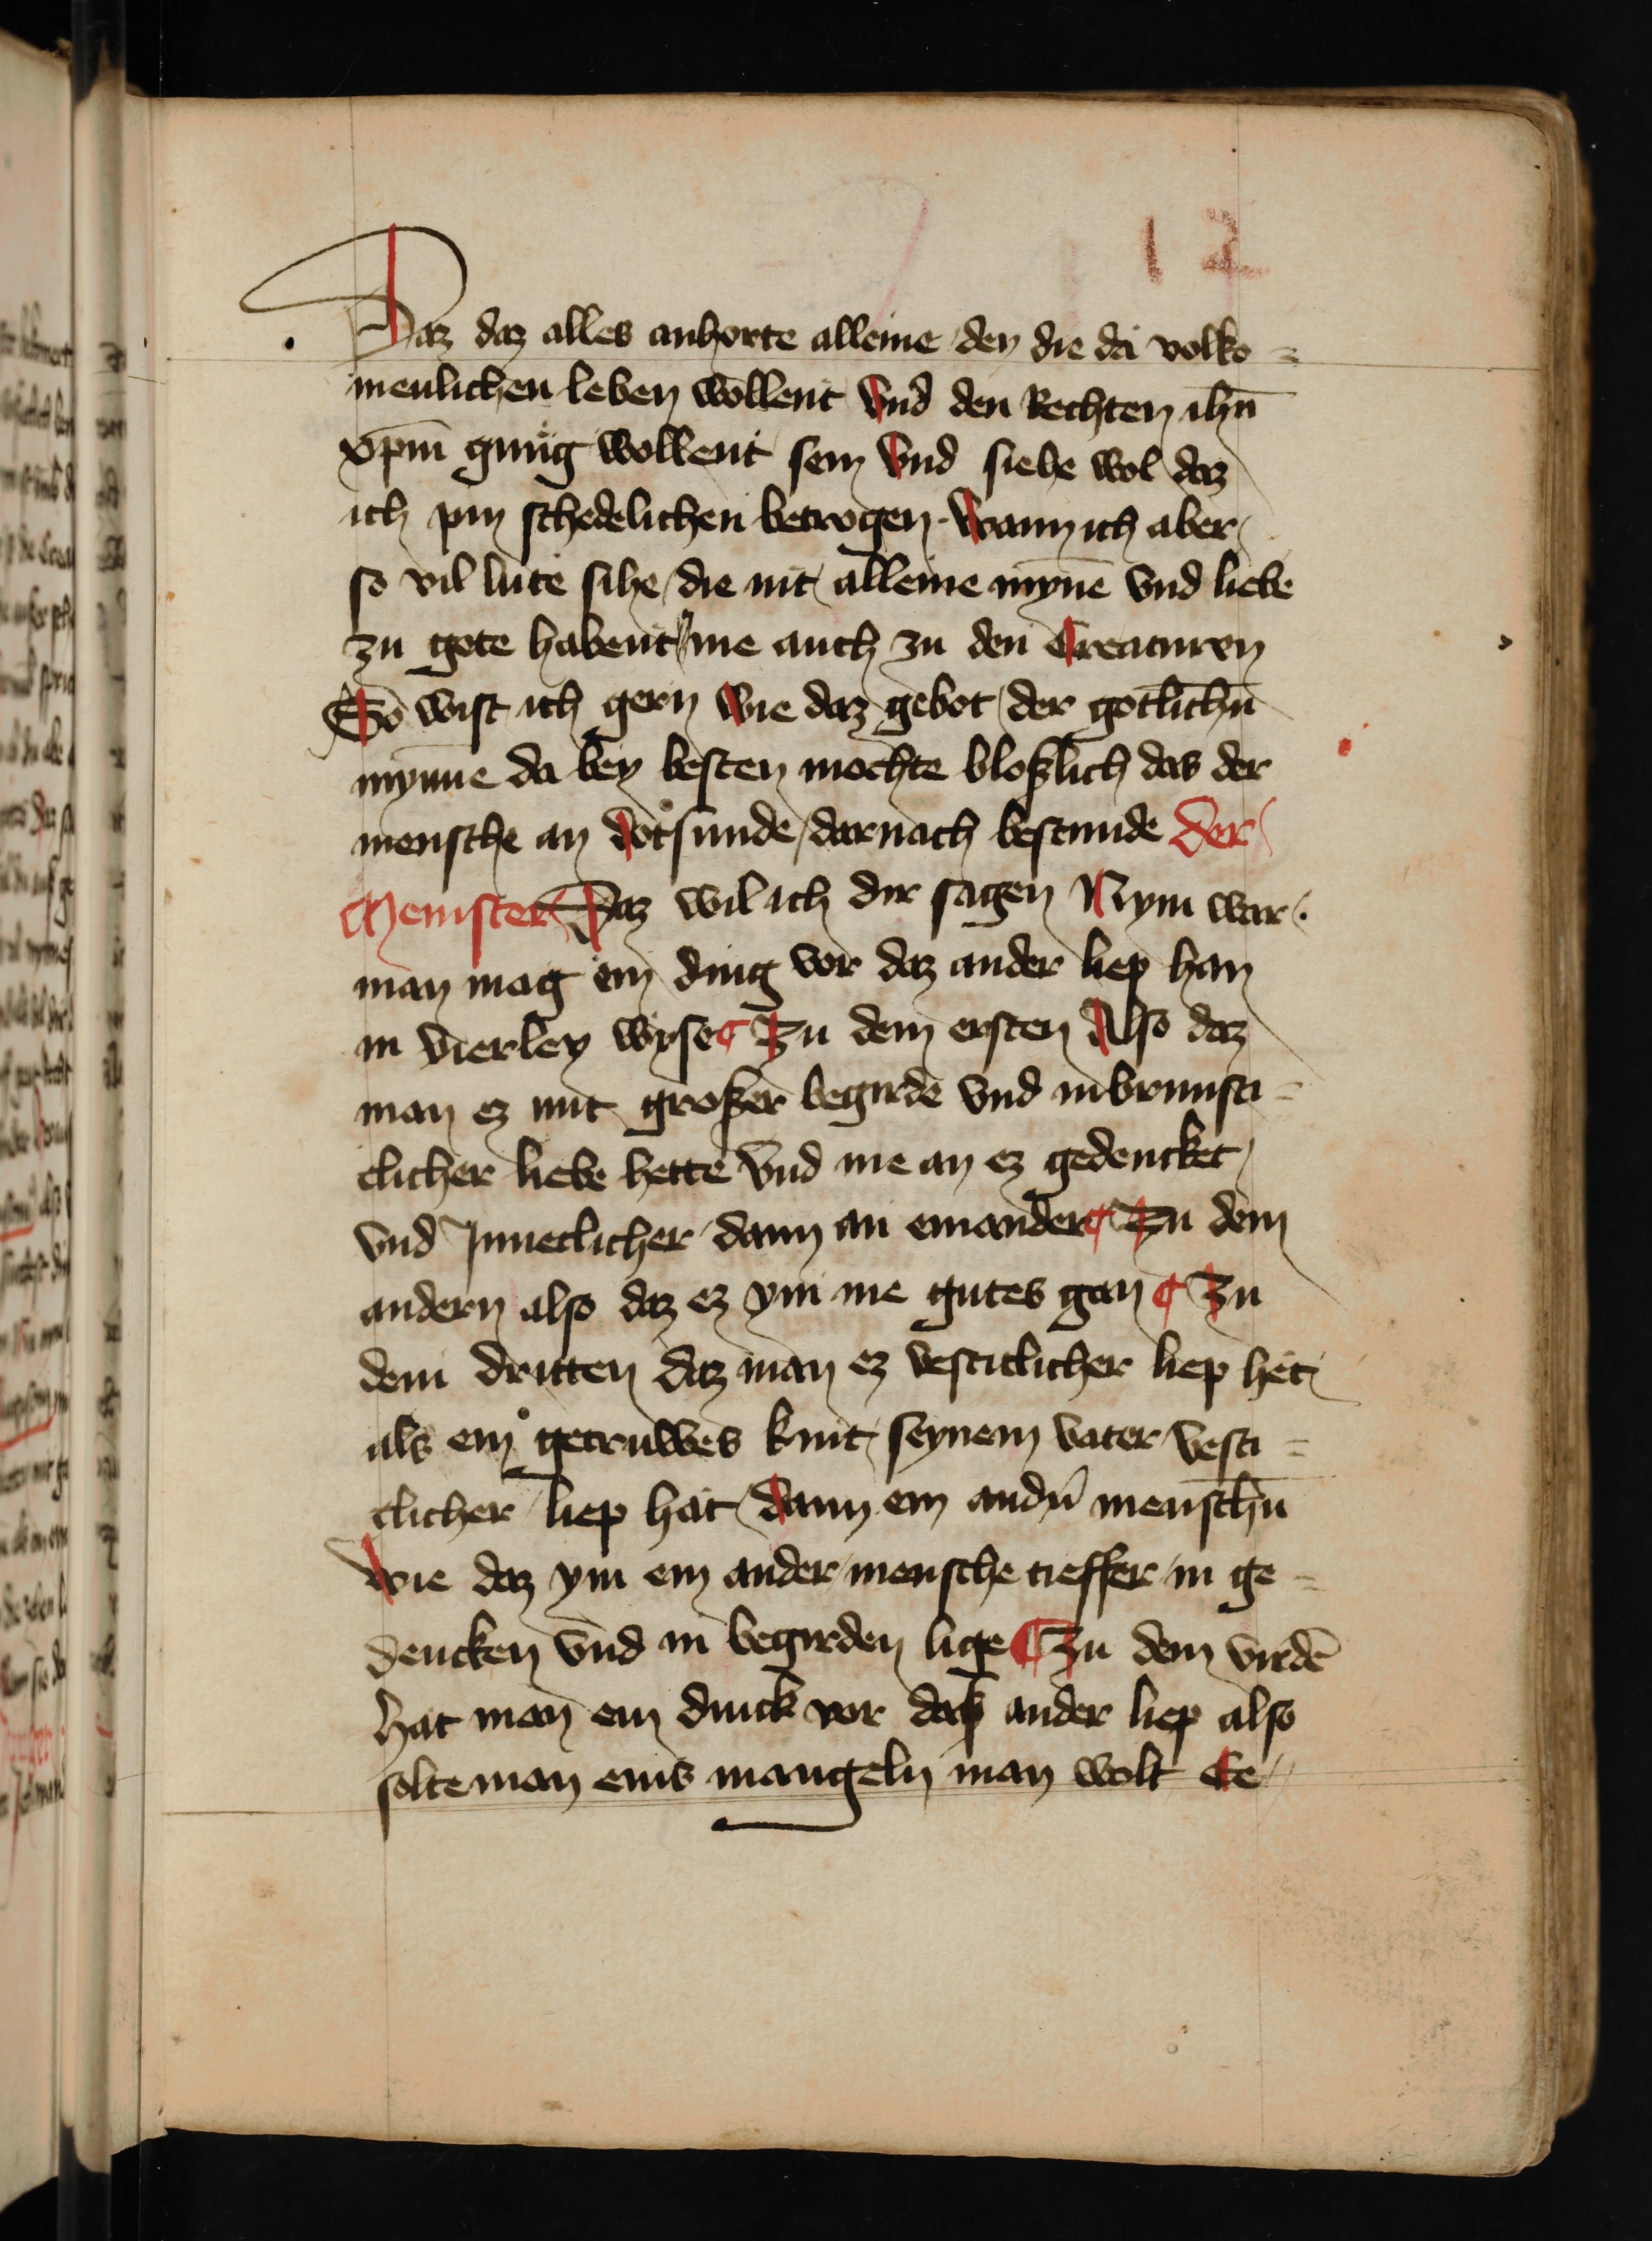 12
Daz daz alles anhorte alleine den die da volko=
menlichen leben wollent Vnd den Rechten ihū
xpm̄ gnug wollent sein Vnd siehe wol daz
ich pin schedelichen betrogen. Wann ich aber
so vil lute sihe die nit alleine mynē vnd liebe
zu gote habent me auch zu den Creaturen
So wist ich gern wie daz gebot der gotlichn̄
mynne da bey besten mochte bloßlich das der
mensche an dotsunde darnach bestunde Der
Meinster Daz wil ich dir sagen Nym war.
man mag ein ding vor daz ander liep han
in vierley wyse ¶ Zu dem ersten Also daz
man ez mit großer begirde vnd inbrunsti=
clicher liebe hette vnd me an ez gedencket
vnd Inneclicher dann an einander ¶ Zu dem
andern also daz ez ym me gutes gan ¶ Zu
dem dritten daz man ez vesticlicher liep het
als ein getruwes kint seynem vater vesti=
clicher liep hat dann ein andn̄ menschn̄
wie daz ym ein ander mensche tieffer in ge=
dencken vnd in begirden lige ¶ Zu dem virdē
hat man ein dinck vor daz ander liep also
solte man eins mangeln man wolt Ee